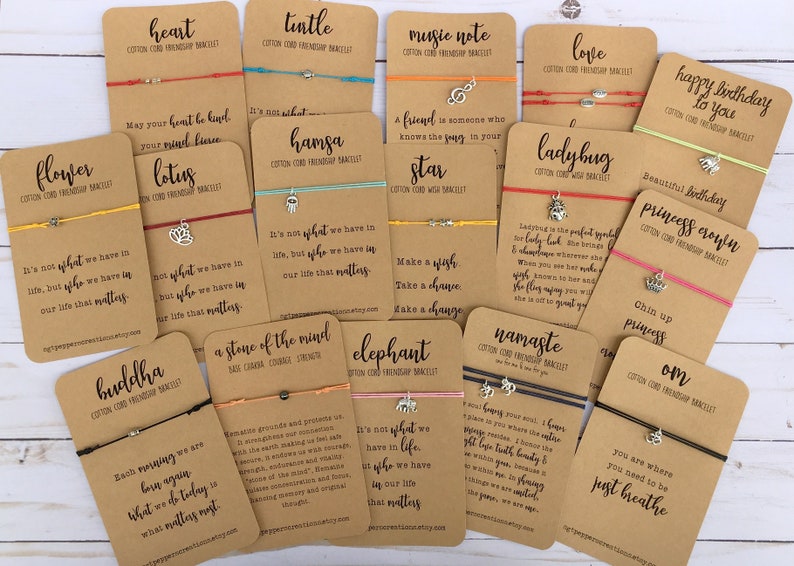 heart
COTTON CORD FRIENDSHIP BRACELET
May your heart be kind,
your mind fierce
turtle
COTTON CORD FRIENDSHIP BRACELET
It's not what we
music note
COTTON CORD FRIENDSHIP BRACELET
A friend is someone who
knows the song in your
love
COTTON CORD FRIENDSHIP BRACELET
happy birthday
to you
COTTON CORD FRIENDSHIP BRACELET
Beautiful birthday
flower
COTTON CORD FRIENDSHIP BRACELET
It's not what we have in
life, but who we have in
our life that matters.
ngtpeppercreations.etsy.com
lotus
COTTON CORD FRIENDSHIP BRACELET
It's not what we have in
life, but who we have in
our life that matters.
hamsa
COTTON CORD FRIENDSHIP BRACELET
It's not what we have in
life, but who we have in
our life that matters.
star
COTTON CORD WISH BRACELET
Make a wish.
Take a chance.
Make a change.
ladybug
COTTON CORD WISH BRACELET
Ladybug is the perfect symbol
for lady-luck. She brings
& abundance wherever she
When you see her make
wish known to her and
she flies away you will
she is off to grant you
princess crown
COTTON CORD FRIENDSHIP BRACELET
Chin up
princess
buddha
COTTON CORD FRIENDSHIP BRACELET
Each morning we are
born again
what we do today is
what matters most.
ngtpeppercreations.etsy.com
a stone of the mind
BASE CHAKRA COURAGE STRENGTH
Hematite grounds and protects us.
It strengthens our connection
with the earth making us feel safe
secure, it endows us with courage,
strength, endurance and vitality.
"stone of the mind", Hematite
stimulates concentration and focus,
enhancing memory and original
thought.
elephant
COTTON CORD FRIENDSHIP BRACELET
It's not what we
have in life,
but who we have
in our life that
matters
ngtpeppercreations.etsy.com
namaste
COTTON CORD FRIENDSHIP BRACELET
one for me & one for you
soul honors your soul. I honor
place in you where the entire
resides. I honor the
light love truth beauty &
within you, because it
within me. In sharing
things we are united,
the same, we are one.
om
COTTON CORD FRIENDSHIP BRACELET
you are where
you need to be
just breathe
ngtpeppercreations.etsy.com